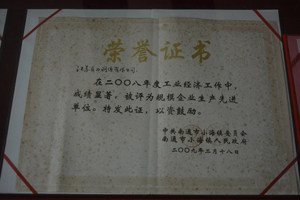 荣誉证书
在二〇〇八年度工业经济工作中，
成绩显著，被评为规模企业生产先进
单位。特发此证，以资鼓励。
中共南通市小海镇委员会
南通市小海镇人民政府
二〇〇九年二月十八日